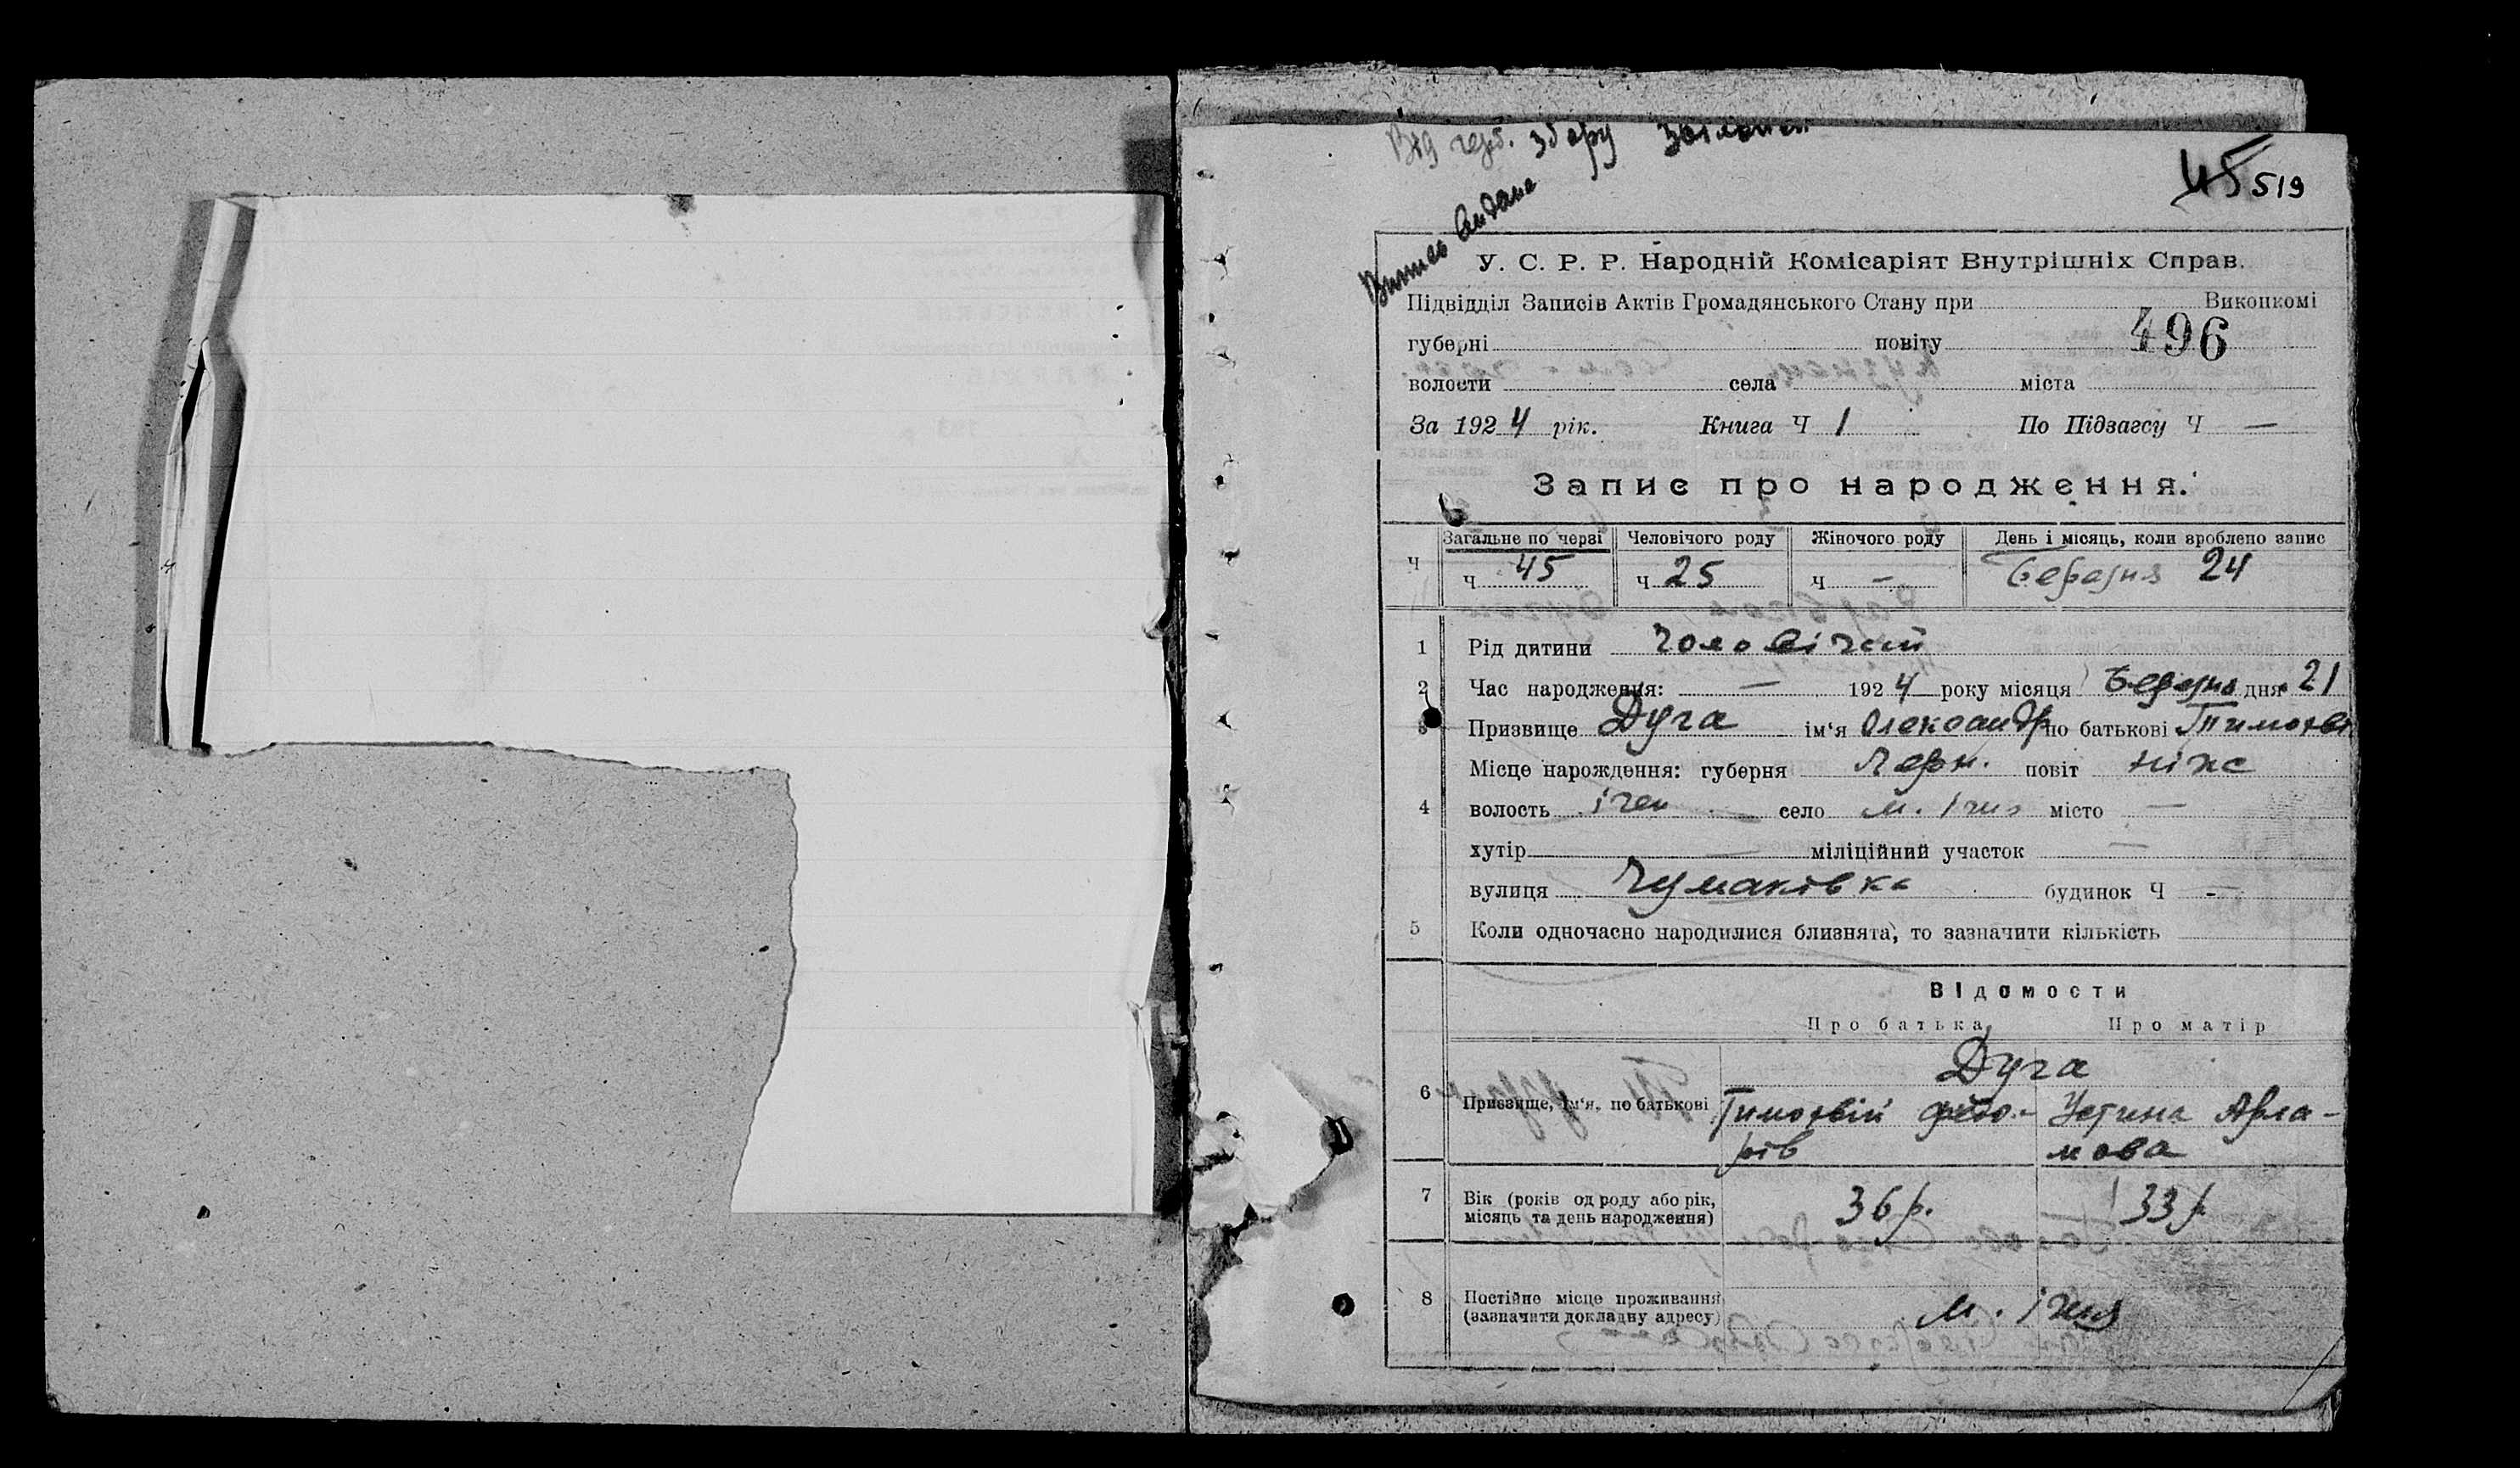 Від герб. збору
Випись видана
45 519
У. С. Р. Р. Народній Комісаріят Внутрішніх Справ.
Підвідділ Записів Актів Громадянського Стану при Виконкомі
губерні повіту 496
волости села міста
За 1924 рік. Книга Ч 1 По Підзагсу Ч —
Запис про народження.
Ч Загальне по черзі Человічого роду Жіночого роду День і місяць, коли зроблено запис
Ч 45 Ч 25 Ч - Березня 24
1 Рід дитини Чоловічий
2 Час народження: — 1924 року місяця Березня дня 21
3 Призвище Дуга ім'я Олександр по батькові Тимохві
Місце народження: губерня Черн. повіт Ніжс
4 волость Ічен — село м. Ічня місто —
хутір — міліційний участок —
вулиця Чумаківка будинок Ч -
5 Коли одночасно народилися близнята, то зазначити кількість
Відомости
Про батька Про матір
Дуга
6 Призвище, ім'я, по батькові Тимохвій Федо- Устина Арла-
рів мова
7 Вік (років од роду або рік, 36 р. 33 р.
місяць та день народження)
8 Постійне місце проживання м. Ічня
(зазначити докладну адресу)